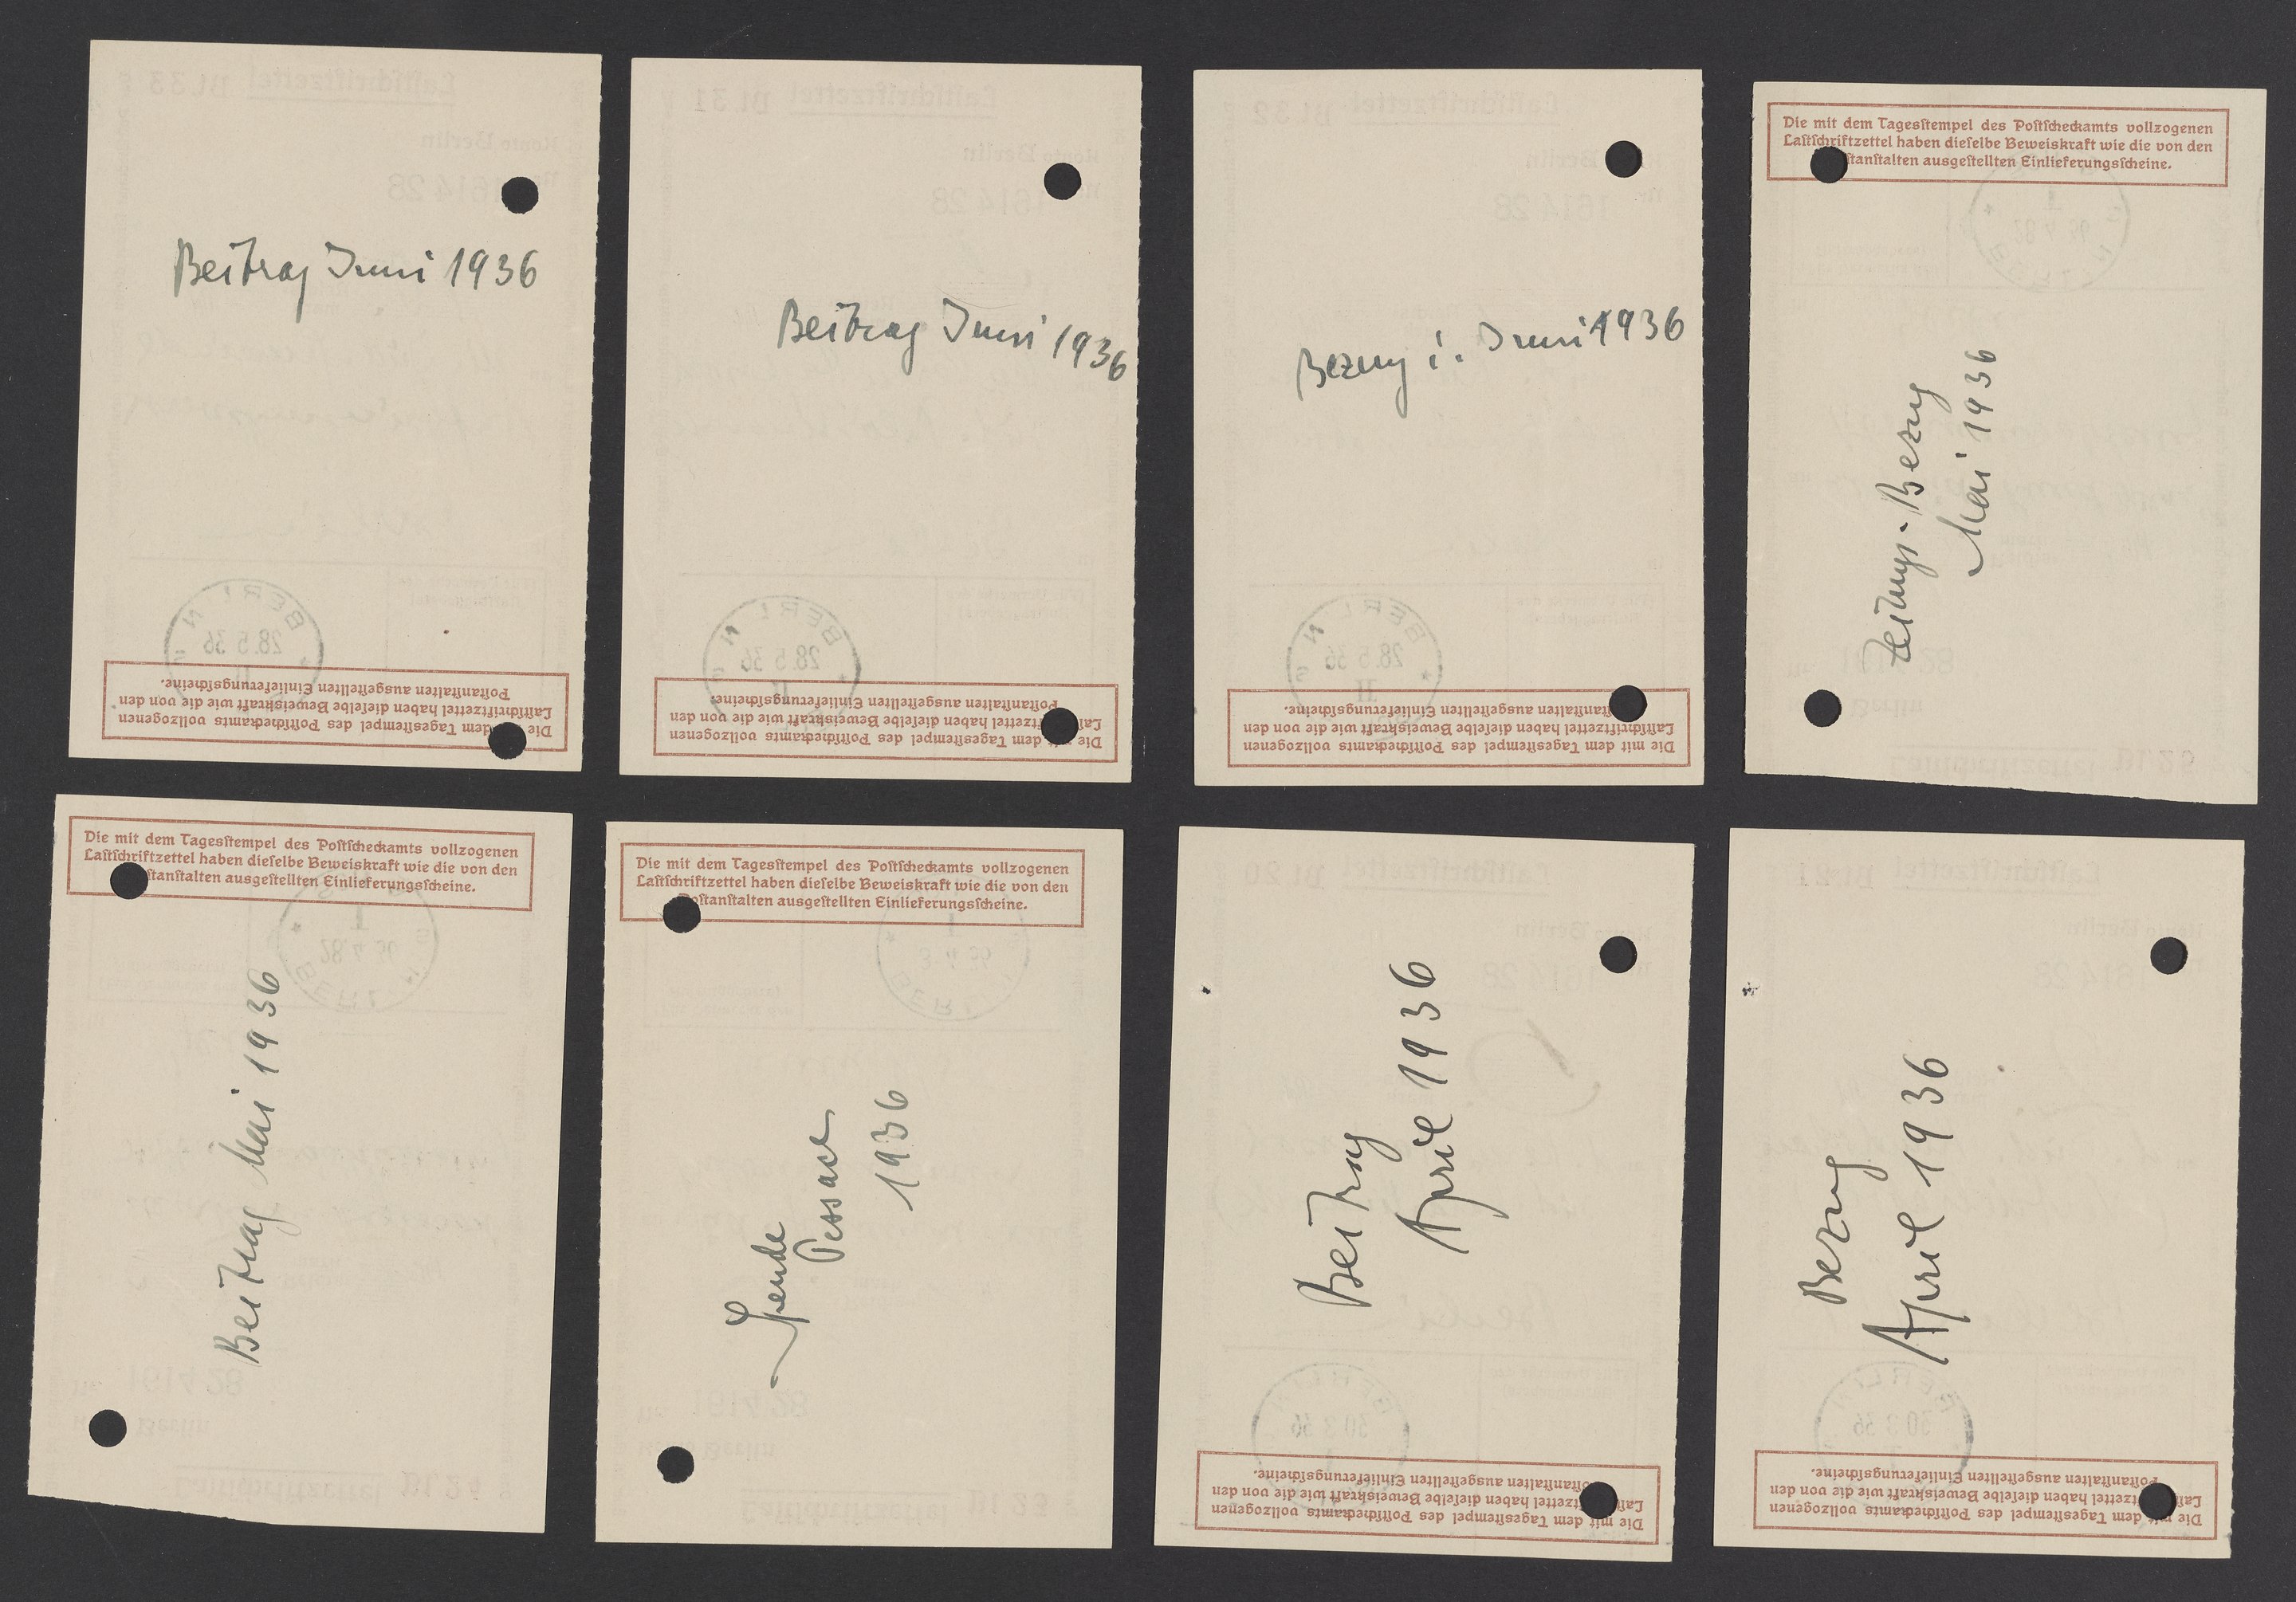 Beitrag Juni 1936
Die mit dem Tagesstempel des Postscheckamts vollzogenen
Lastschriftzettel haben dieselbe Beweiskraft wie die von den
Postanstalten ausgestellten Einlieferungsscheine.
Beitrag Juni 1936
Die mit dem Tagesstempel des Postscheckamts vollzogenen
Lastschriftzettel haben dieselbe Beweiskraft wie die von den
Postanstalten ausgestellten Einlieferungsscheine.
Bezug i. Juni 1936
Die mit dem Tagesstempel des Postscheckamts vollzogenen
Lastschriftzettel haben dieselbe Beweiskraft wie die von den
Postanstalten ausgestellten Einlieferungsscheine.
Die mit dem Tagesstempel des Postscheckamts vollzogenen
Lastschriftzettel haben dieselbe Beweiskraft wie die von den
Postanstalten ausgestellten Einlieferungsscheine.
Zeitungs-Bezug
Mai 1936
Die mit dem Tagesstempel des Postscheckamts vollzogenen
Lastschriftzettel haben dieselbe Beweiskraft wie die von den
Postanstalten ausgestellten Einlieferungsscheine.
Beitrag Mai 1936
Die mit dem Tagesstempel des Postscheckamts vollzogenen
Lastschriftzettel haben dieselbe Beweiskraft wie die von den
Postanstalten ausgestellten Einlieferungsscheine.
Spende
Pessach
1936
Beitrag
April 1936
Die mit dem Tagesstempel des Postscheckamts vollzogenen
Lastschriftzettel haben dieselbe Beweiskraft wie die von den
Postanstalten ausgestellten Einlieferungsscheine.
Bezug
April 1936
Die mit dem Tagesstempel des Postscheckamts vollzogenen
Lastschriftzettel haben dieselbe Beweiskraft wie die von den
Postanstalten ausgestellten Einlieferungsscheine.